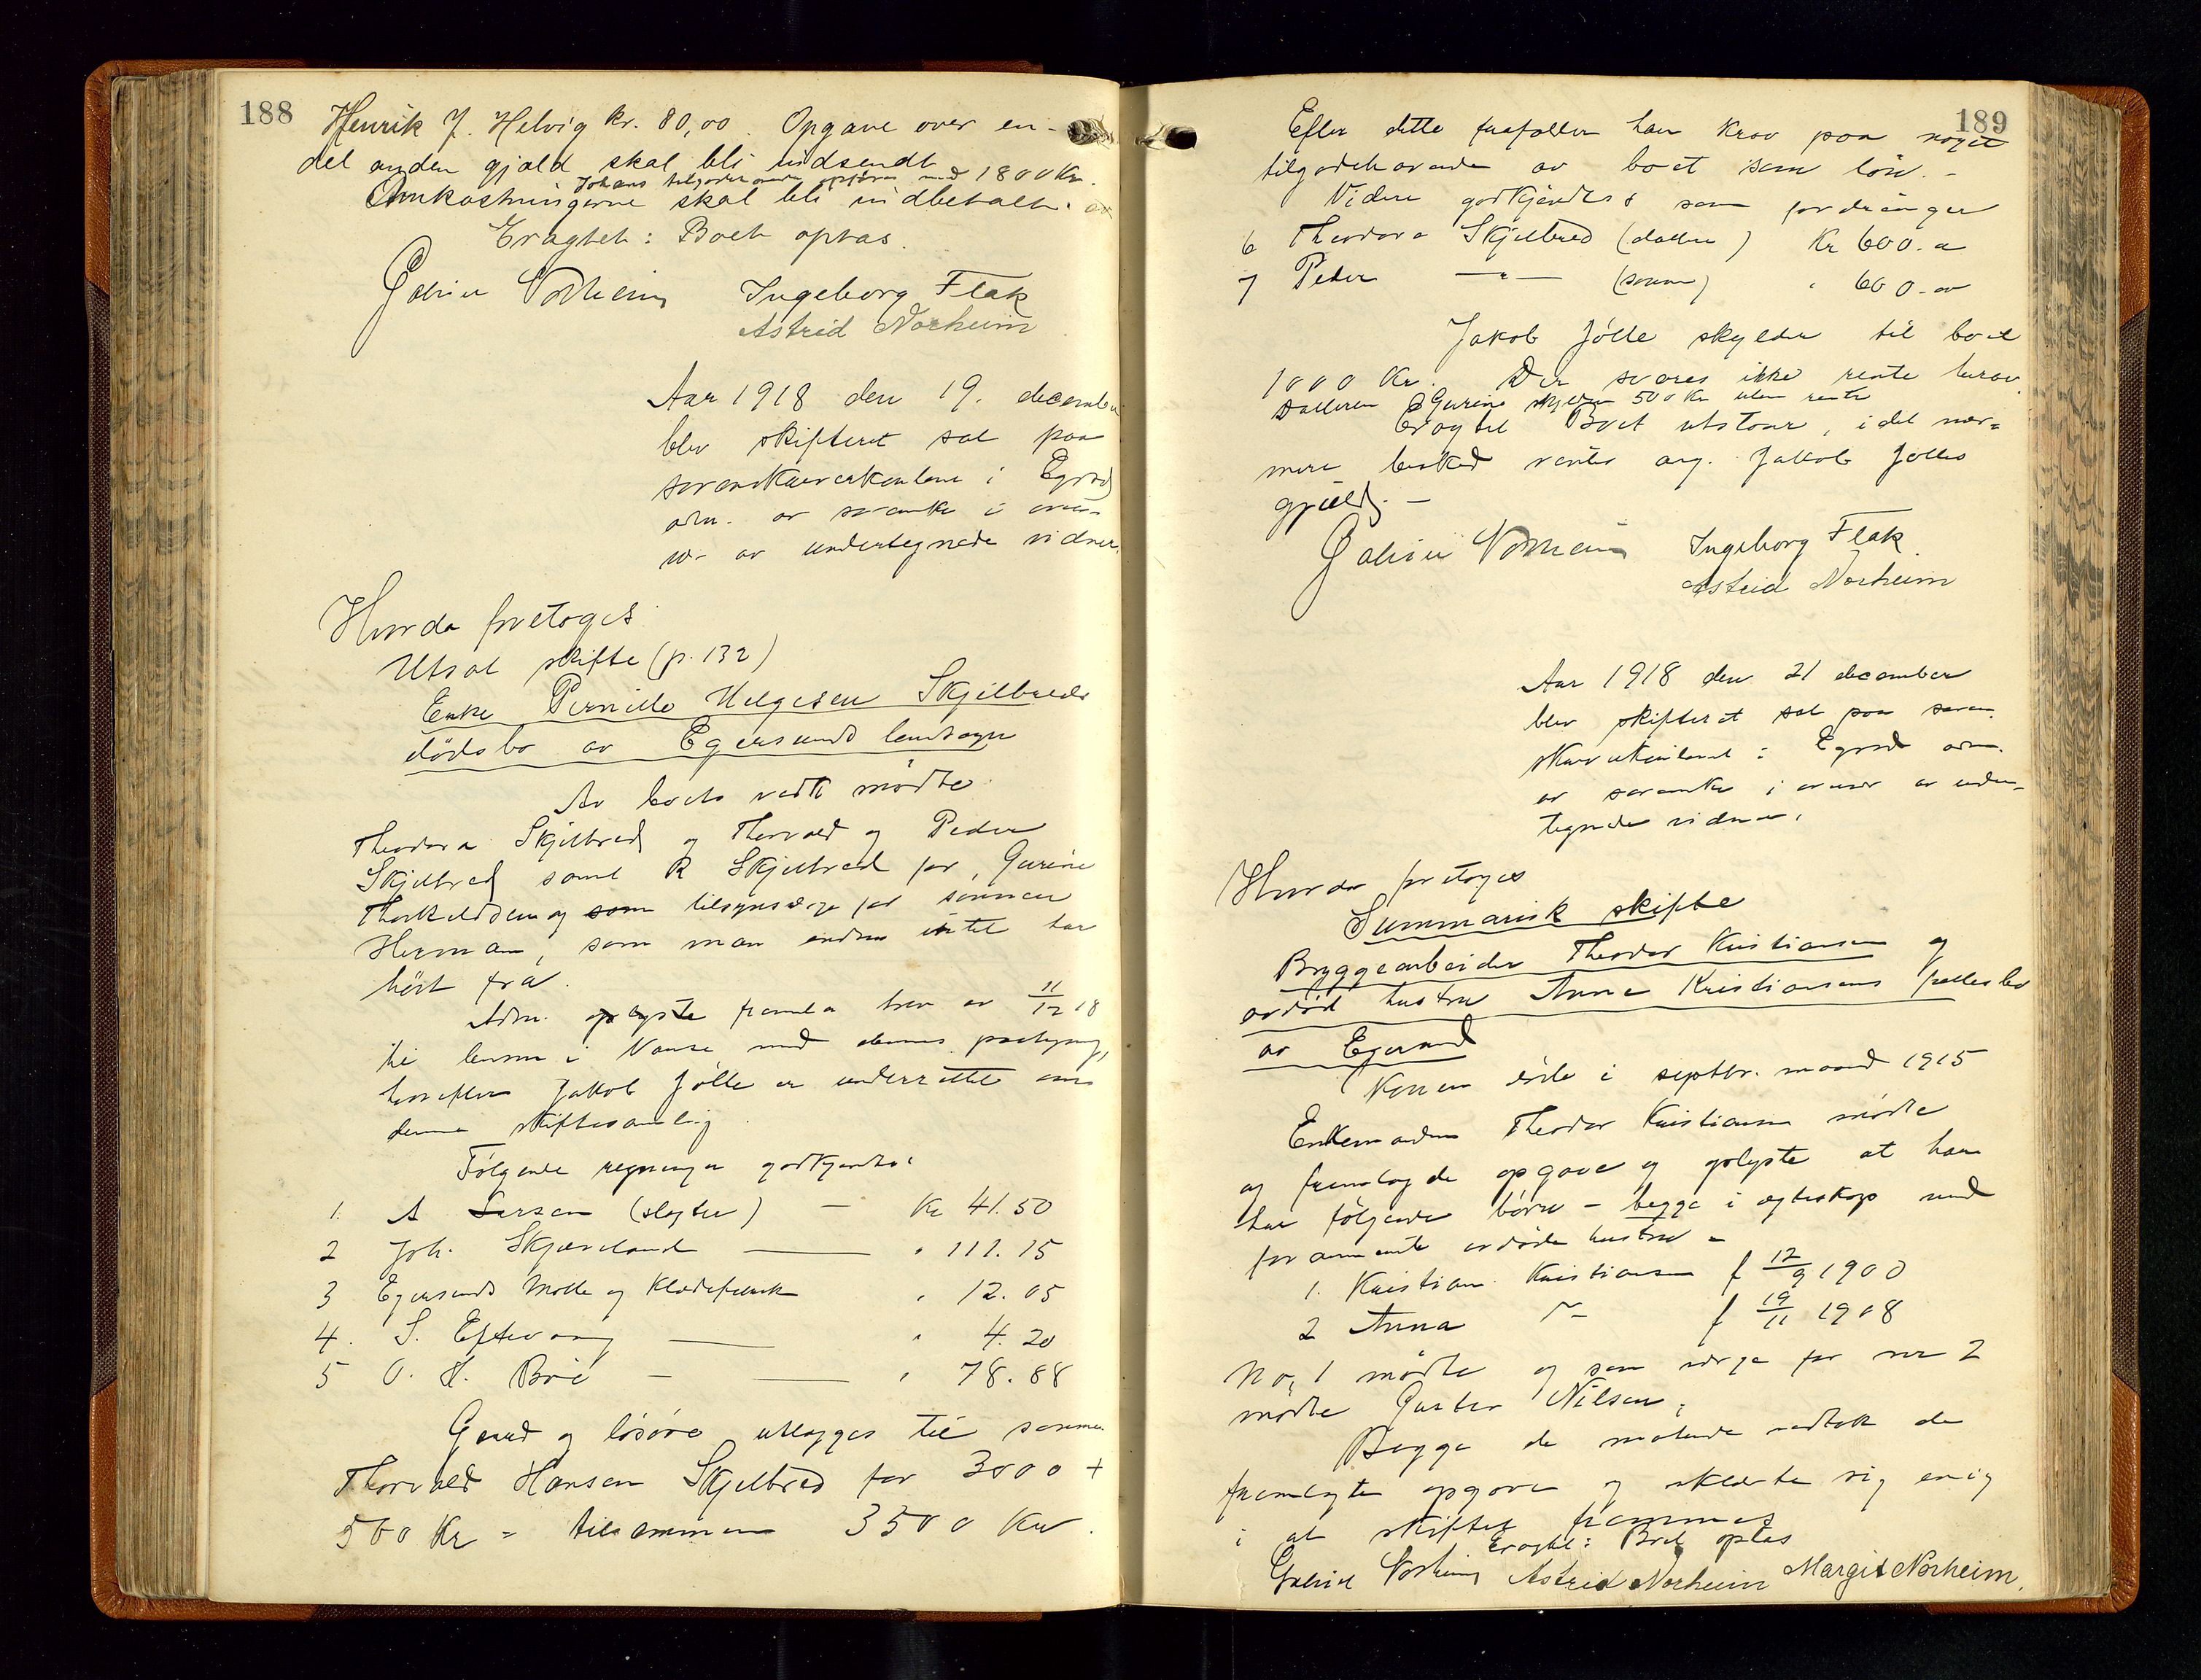 188
Henrik J. Helvig kr. 80,00. Opgave over en-
del anden gjæld skal bli indsendt
Johans tilgodehavende opføres med 1800 Kr.
Omkostningerne skal bli indbetalt.
Eragtet: Boet optas.
Gabriel Norheim Ingeborg Flak
Astrid Norheim
Aar 1918 den 19. december
blev skifteret sat paa
sorenskriverkontoret i Egrsd
adm. av
av undertegnede vidner.
Hvorda foretoges
Utsat skifte (p. 132)
Enke Pernille Helgesen Skjelbreds
dødsbo av Egersunds landsogn
Av boets vedk mødte
Theodora Skjelbred og Thorvald og Peder
Skjelbred samt R Skjelbred for Gurine
Thorkildsen og som tilsynsverge for sønnen
Herman, som man endnu intet har
hørt fra.
Adm. oplyste fremla brev av 11/12 18
til lensm i Vanse med dennes paategning,
hvorefter Jakob Jølle er underrettet om
denne skiftesamling.
Følgende regninger godkjendtes:
1. A Larsen (slagter) — Kr 41.50
2 Joh. Skjæveland — " 111.15
3 Egersunds Mølle og Klædefabrik " 12.05
4. S. Eftevaag — " 4.20
5 O. H. Bøe — — " 78.88
Gaard og løsøre utlægges til sønnen
Thorvald Hansen Skjelbred for 3000 +
500 Kr = tilsammen 3500 Kr.
189
Efter dette frafaller han krav paa noget
tilgodehavende av boet som løn. -
Videre godkjendtes som fordringer
6 Theodora Skjelbred (datter) Kr 600.00
7 Peder —"— (sønn) " 600.00
Jakob Jølle skylder til boet
1000 Kr. Der svares ikke rente herav.
Datteren Gurine skylder 500 Kr uten rente
Eragtet Boet utstaar, idet nær-
mere besked ventes ang. Jakob Jølles
gjæld. —
Gabriel Norheim Ingeborg Flak
Astrid Norheim
Aar 1918 den 21 december
blev skifteret sat paa soren
skriverkontoret i Egrsd adm.
av under-
tegnede vidner.
Hvorda foretoges
Summarisk skifte
Bryggearbeider Theodor Kristiansen og
avdød hustru Anna Kristiansens fællesbo
av Egersund
Konen døde i septbr. maaned 1915
Enkemanden Theodor Kristiansen mødte
og fremlagde opgave og oplyste at han
har følgende børn - begge i egteskap med
forannævnte avdøde hustru -
1. Kristian Kristiansen f 12/9 1900
2 Anna "- f 19/11 1908
No. 1 mødte og som verge for nr 2
mødte Gustav Nilsen.
Begge de møtende vedtok de
fremlagte opgaver og erklærte sig enig
i at skiftet fremmes
Eragtet: Boet optas
Gabriel Norheim Astrid Norheim Margit Norheim.